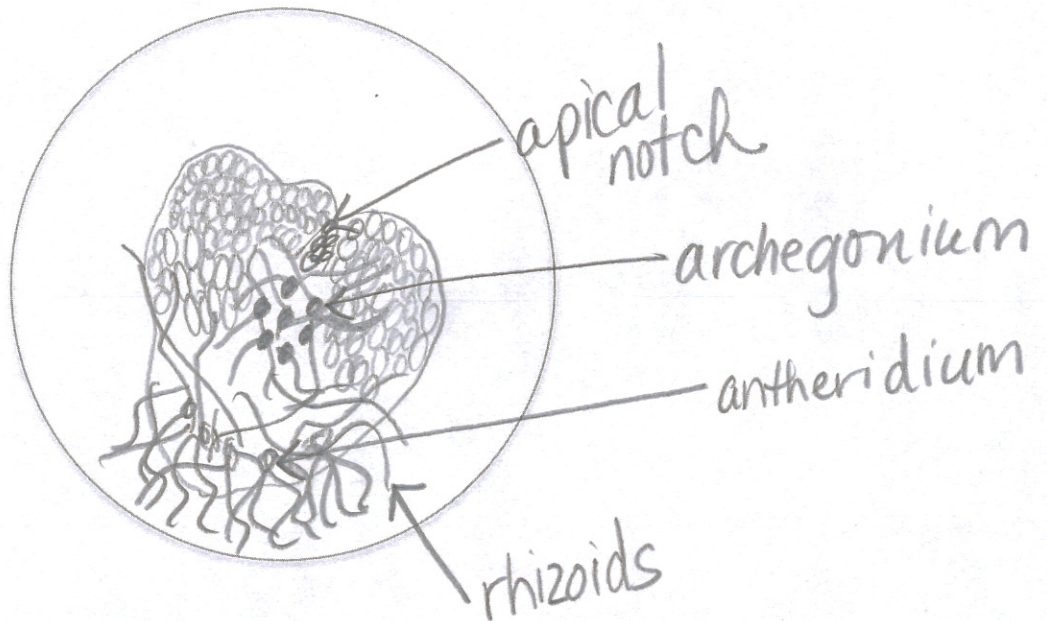 apical
notch
archegonium
antheridium
rhizoids